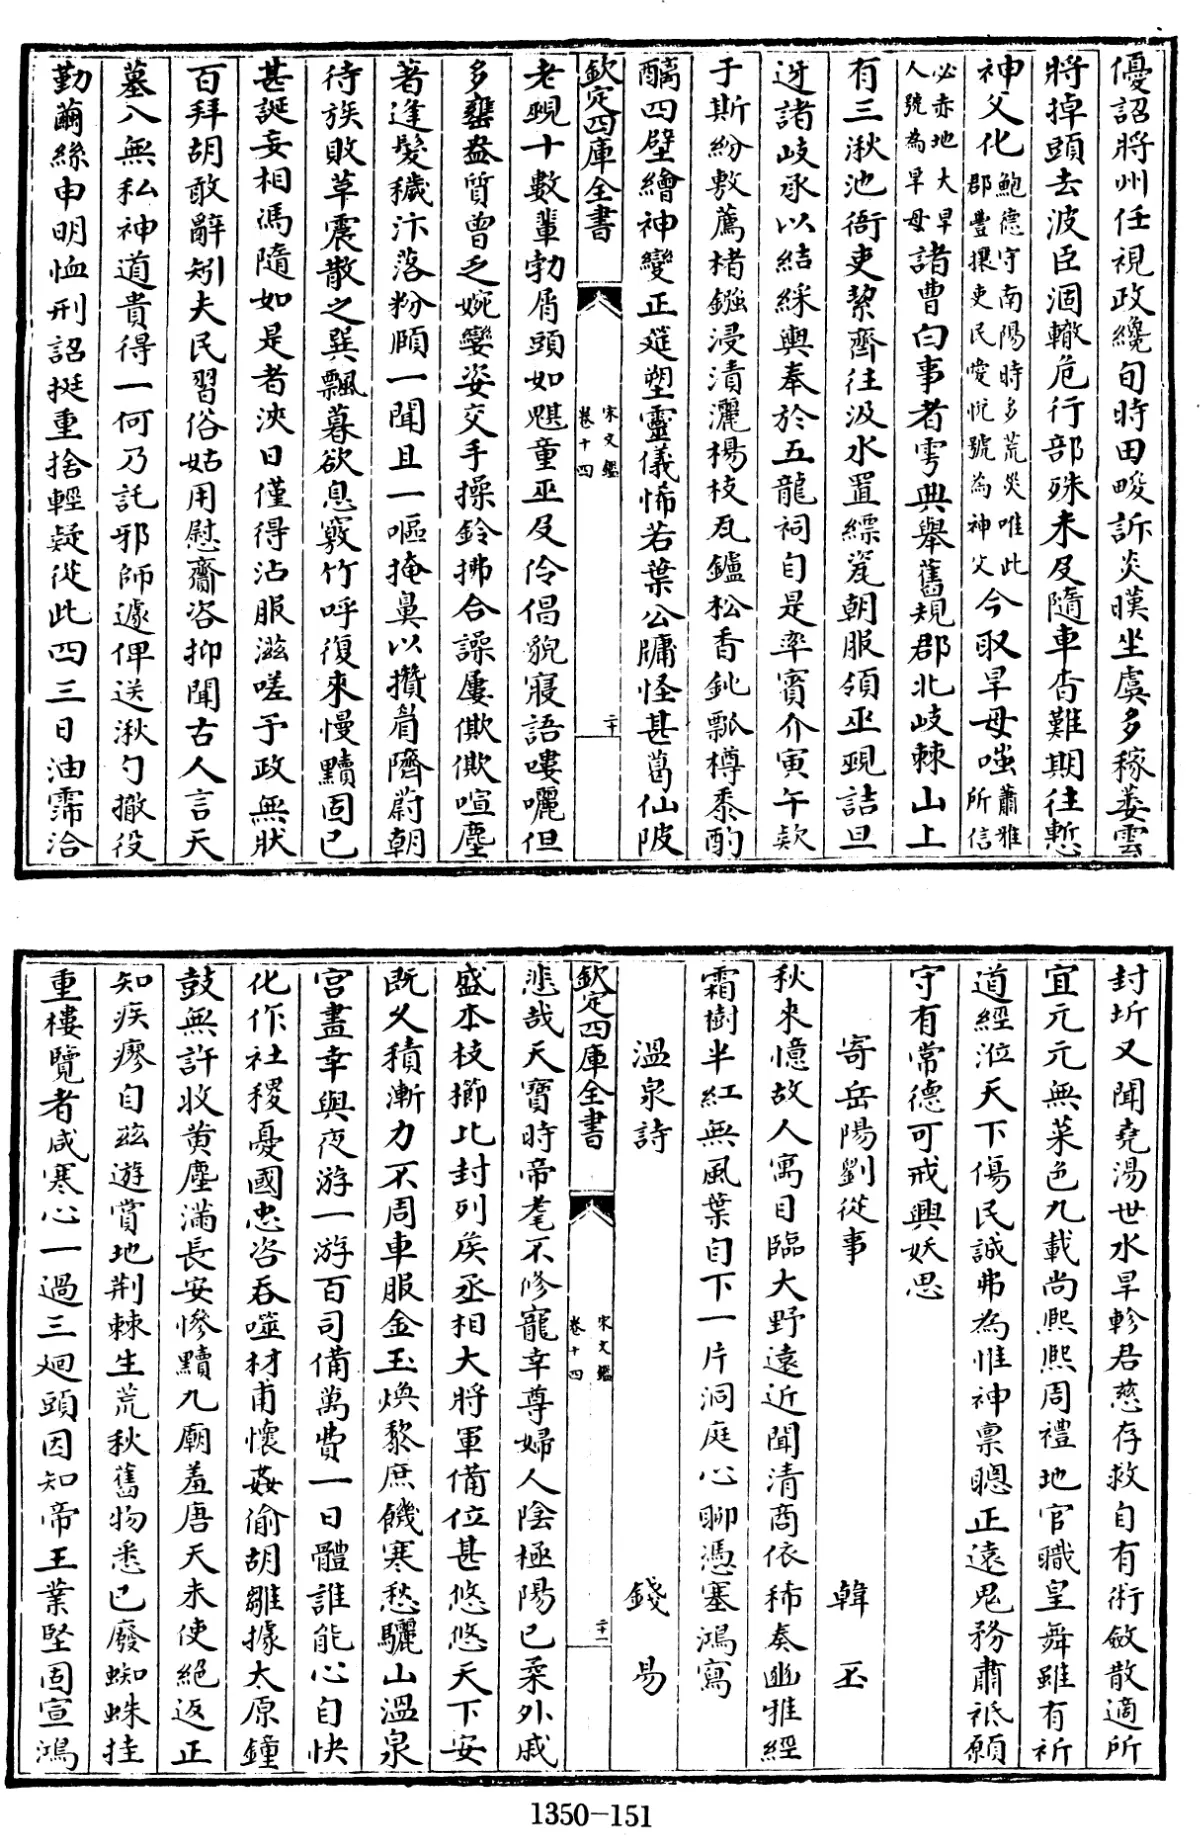 優詔將州任視政纔旬時田畯訴炎暵坐虞多稼萎雲
將掉頭去波臣涸轍危行部殊未及隨車杳難期往慙
神父化鮑德守南陽時多荒災唯此郡豐攘吏民愛忱號為神父今取旱母嗤蕭雅所信
必赤地大旱人號為旱母諸曹白事者雩典舉舊規郡北岐棘山上
有三湫池衙吏絜齊往汲水置縹瓷朝服領巫覡詰旦
迓諸岐承以結綵輿奉於五龍祠自是率賓介寅午款
于斯紛敷薦楮鏹浸漬灑楊枝瓦鑪松香鈋瓢樽黍酌
醨四壁繪神變正筵塑靈儀怖若葉公牗怪甚葛仙陂
欽定四庫全書
宋文鑑
卷十四
二十
老覡十數輩勃屑頭如䫏童巫及伶倡貌寢語嘍囉但
多壅盎質曾乏婉孌姿交手操鈴拂合譟屢僛僛喧塵
著逢髮穢汴落粉頤一聞且一嘔掩鼻以攢眉隮蔚朝
待族敗草震散之巽飄暮欲息竅竹呼復來慢黷固已
甚誕妄相馮隨如是者浹日僅得沾服滋嗟予政無狀
百拜胡敢辭矧夫民習俗姑用慰齎咨抑聞古人言天
墓八無私神道貴得一何乃託邪師遽俾送湫勺撤役
勤繭絲申明恤刑詔挺重捨輕疑從此四三日油霈洽
封圻又聞堯湯世水旱軫君慈存救自有術斂散適所
宜元元無菜色九載尚熙熙周禮地官職皇舞雖有祈
道經涖天下傷民誠弗為惟神稟聰正遠鬼務肅祗願
守有常德可戒興妖思
寄岳陽劉從事 韓玉
秋來憶故人寓目臨大野遠近聞清商依稀奏豳雅經
霜樹半紅無風葉自下一片洞庭心聊憑塞鴻寫
溫泉詩 錢易
欽定四庫全書
宋文鑑
卷十四
二十一
悲哉天寶時帝耄不修寵幸尊婦人陰極陽已柔外戚
盛本枝擳比封列矦丞相大將軍備位甚悠悠天下安
既乆積漸力不周車服金玉煥黎庶饑寒愁驪山溫泉
宫晝幸與夜游一游百司備萬費一日體誰能心自快
化作社稷憂國忠咨吞噬材甫懷姦偷胡雛據太原鐘
鼓無許收黄塵滿長安慘黷九廟羞唐天未使絕返正
知疾瘳自茲遊賞地荆棘生荒秋舊物悉已廢蜘蛛挂
重樓覽者咸寒心一過三廻頭因知帝王業堅固宣鴻
1350-151